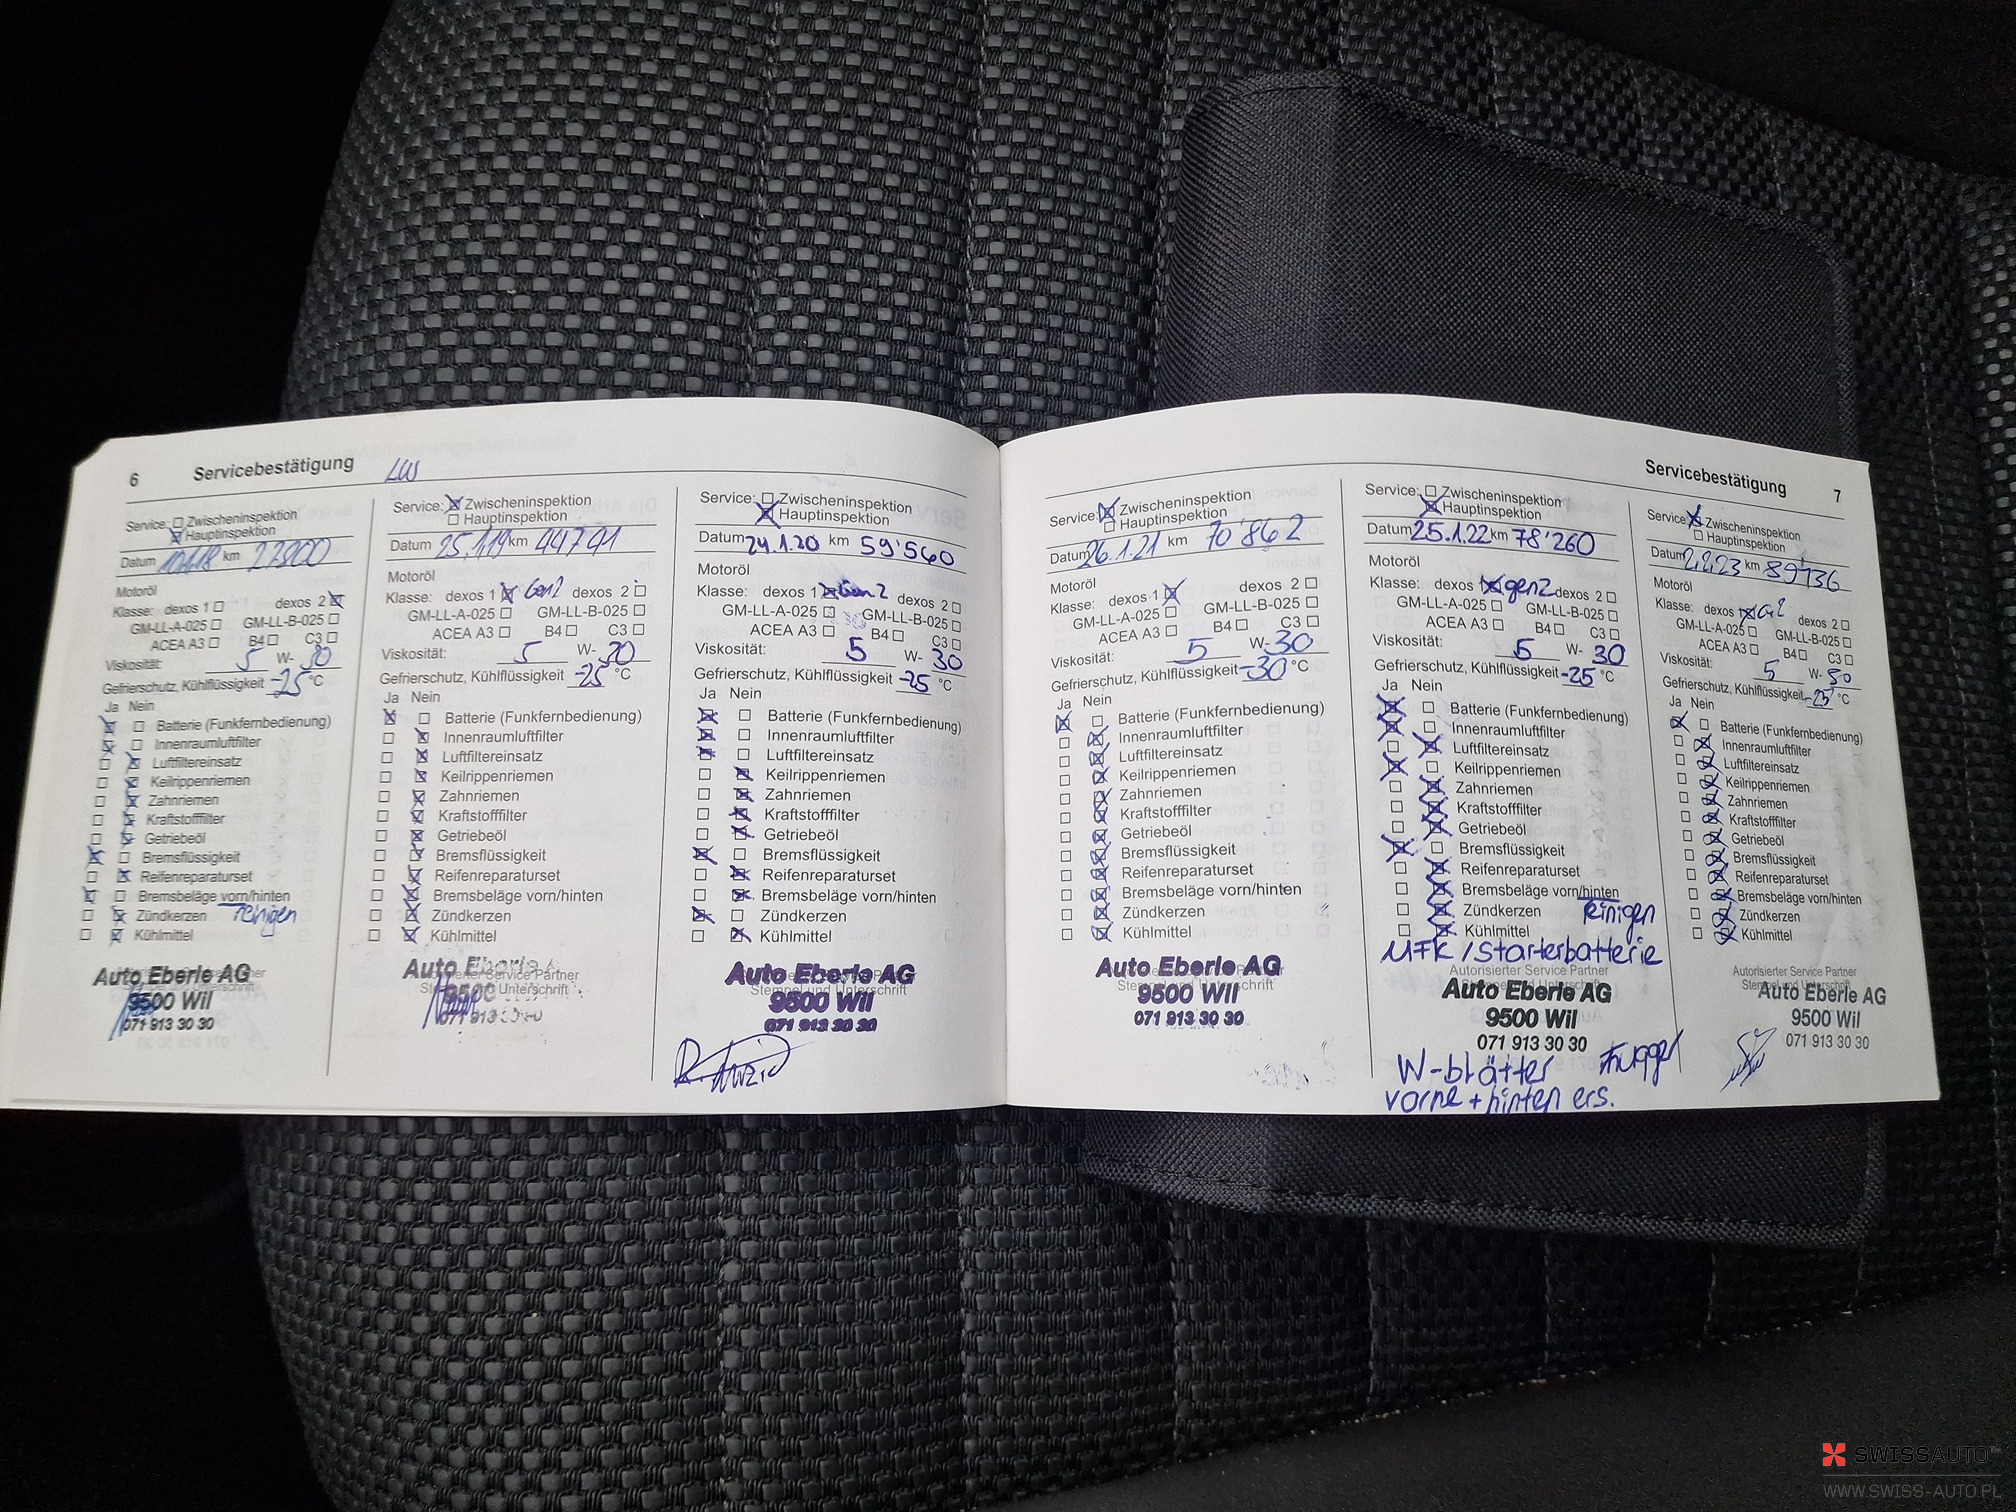 6 Servicebestätigung
Service: Zwischeninspektion
Hauptinspektion
Datum km 27800
Motoröl
Klasse: dexos 1 dexos 2
GM-LL-A-025 GM-LL-B-025
ACEA A3 B4 C3
Viskosität: 5 W- 30
Gefrierschutz, Kühlflüssigkeit -25 °C
Ja Nein
Batterie (Funkfernbedienung)
Innenraumluftfilter
Luftfiltereinsatz
Keilrippenriemen
Zahnriemen
Kraftstofffilter
Getriebeöl
Bremsflüssigkeit
Reifenreparaturset
Bremsbeläge vorn/hinten
Zündkerzen reinigen
Kühlmittel
Auto Eberle AG
9500 Wil
071 913 30 30
Service: Zwischeninspektion
Hauptinspektion
Datum 25.1.19 km 44741
Motoröl
Klasse: dexos 1 Gen2 dexos 2
GM-LL-A-025 GM-LL-B-025
ACEA A3 B4 C3
Viskosität: 5 W- 30
Gefrierschutz, Kühlflüssigkeit -25 °C
Ja Nein
Batterie (Funkfernbedienung)
Innenraumluftfilter
Luftfiltereinsatz
Keilrippenriemen
Zahnriemen
Kraftstofffilter
Getriebeöl
Bremsflüssigkeit
Reifenreparaturset
Bremsbeläge vorn/hinten
Zündkerzen
Kühlmittel
Auto Eberle
Autorisierter Service Partner
Stempel und Unterschrift
9500
Service: Zwischeninspektion
Hauptinspektion
Datum 24.1.20 km 59'560
Motoröl
Klasse: dexos 1 Gen 2 dexos 2
GM-LL-A-025 GM-LL-B-025
ACEA A3 B4 C3
Viskosität: 5 W- 30
Gefrierschutz, Kühlflüssigkeit -25 °C
Ja Nein
Batterie (Funkfernbedienung)
Innenraumluftfilter
Luftfiltereinsatz
Keilrippenriemen
Zahnriemen
Kraftstofffilter
Getriebeöl
Bremsflüssigkeit
Reifenreparaturset
Bremsbeläge vorn/hinten
Zündkerzen
Kühlmittel
Auto Eberle AG
Autorisierter Service Partner
Stempel und Unterschrift
9500 Wil
071 913 30 30
Servicebestätigung 7
Service: Zwischeninspektion
Hauptinspektion
Datum 26.1.21 km 70'862
Motoröl
Klasse: dexos 1 dexos 2
GM-LL-A-025 GM-LL-B-025
ACEA A3 B4 C3
Viskosität: 5 W- 30
Gefrierschutz, Kühlflüssigkeit -30 °C
Ja Nein
Batterie (Funkfernbedienung)
Innenraumluftfilter
Luftfiltereinsatz
Keilrippenriemen
Zahnriemen
Kraftstofffilter
Getriebeöl
Bremsflüssigkeit
Reifenreparaturset
Bremsbeläge vorn/hinten
Zündkerzen
Kühlmittel
Auto Eberle AG
Autorisierter Service Partner
Stempel und Unterschrift
9500 Wil
071 913 30 30
Service: Zwischeninspektion
Hauptinspektion
Datum 25.1.22 km 78'260
Motoröl
Klasse: dexos 1 gen2 dexos 2
GM-LL-A-025 GM-LL-B-025
ACEA A3 B4 C3
Viskosität: 5 W- 30
Gefrierschutz, Kühlflüssigkeit -25 °C
Ja Nein
Batterie (Funkfernbedienung)
Innenraumluftfilter
Luftfiltereinsatz
Keilrippenriemen
Zahnriemen
Kraftstofffilter
Getriebeöl
Bremsflüssigkeit
Reifenreparaturset
Bremsbeläge vorn/hinten
Zündkerzen Reinigen
Kühlmittel
MFK / Starterbatterie
Autorisierter Service Partner
Stempel und Unterschrift
Auto Eberle AG
9500 Wil
071 913 30 30
W-blätter
vorne + hinten ers.
Service: Zwischeninspektion
Hauptinspektion
Datum 2.2.23 km 89'136
Motoröl
Klasse: dexos 1 dexos 2
GM-LL-A-025 GM-LL-B-025
ACEA A3 B4 C3
Viskosität: 5 W- 30
Gefrierschutz, Kühlflüssigkeit -25 °C
Ja Nein
Batterie (Funkfernbedienung)
Innenraumluftfilter
Luftfiltereinsatz
Keilrippenriemen
Zahnriemen
Kraftstofffilter
Getriebeöl
Bremsflüssigkeit
Reifenreparaturset
Bremsbeläge vorn/hinten
Zündkerzen
Kühlmittel
Autorisierter Service Partner
Stempel und Unterschrift
Auto Eberle AG
9500 Wil
071 913 30 30
SWISSAUTO
WWW.SWISS-AUTO.PL